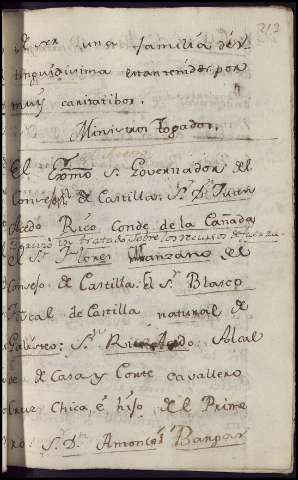 213
de ser una familia dis-
tinguidisima estan tenidos por
muy caritatibos.
Ministros Togados.
El Exmo Sr Governador del
Consejo de Castilla: Sr Dn Juan
Acedo Rico Conde de la Cañada
tratado sobre los recursos de fuerza.
el Sr Flores Manzano del
Consejo de Castilla: El Sr Blasco
Fiscal de Castilla natural de
Sr Rico Acedo: Alcal
de de Casa y Corte cavallero
Cruz Chica, é hijo del Prime
ro: Sr Dn